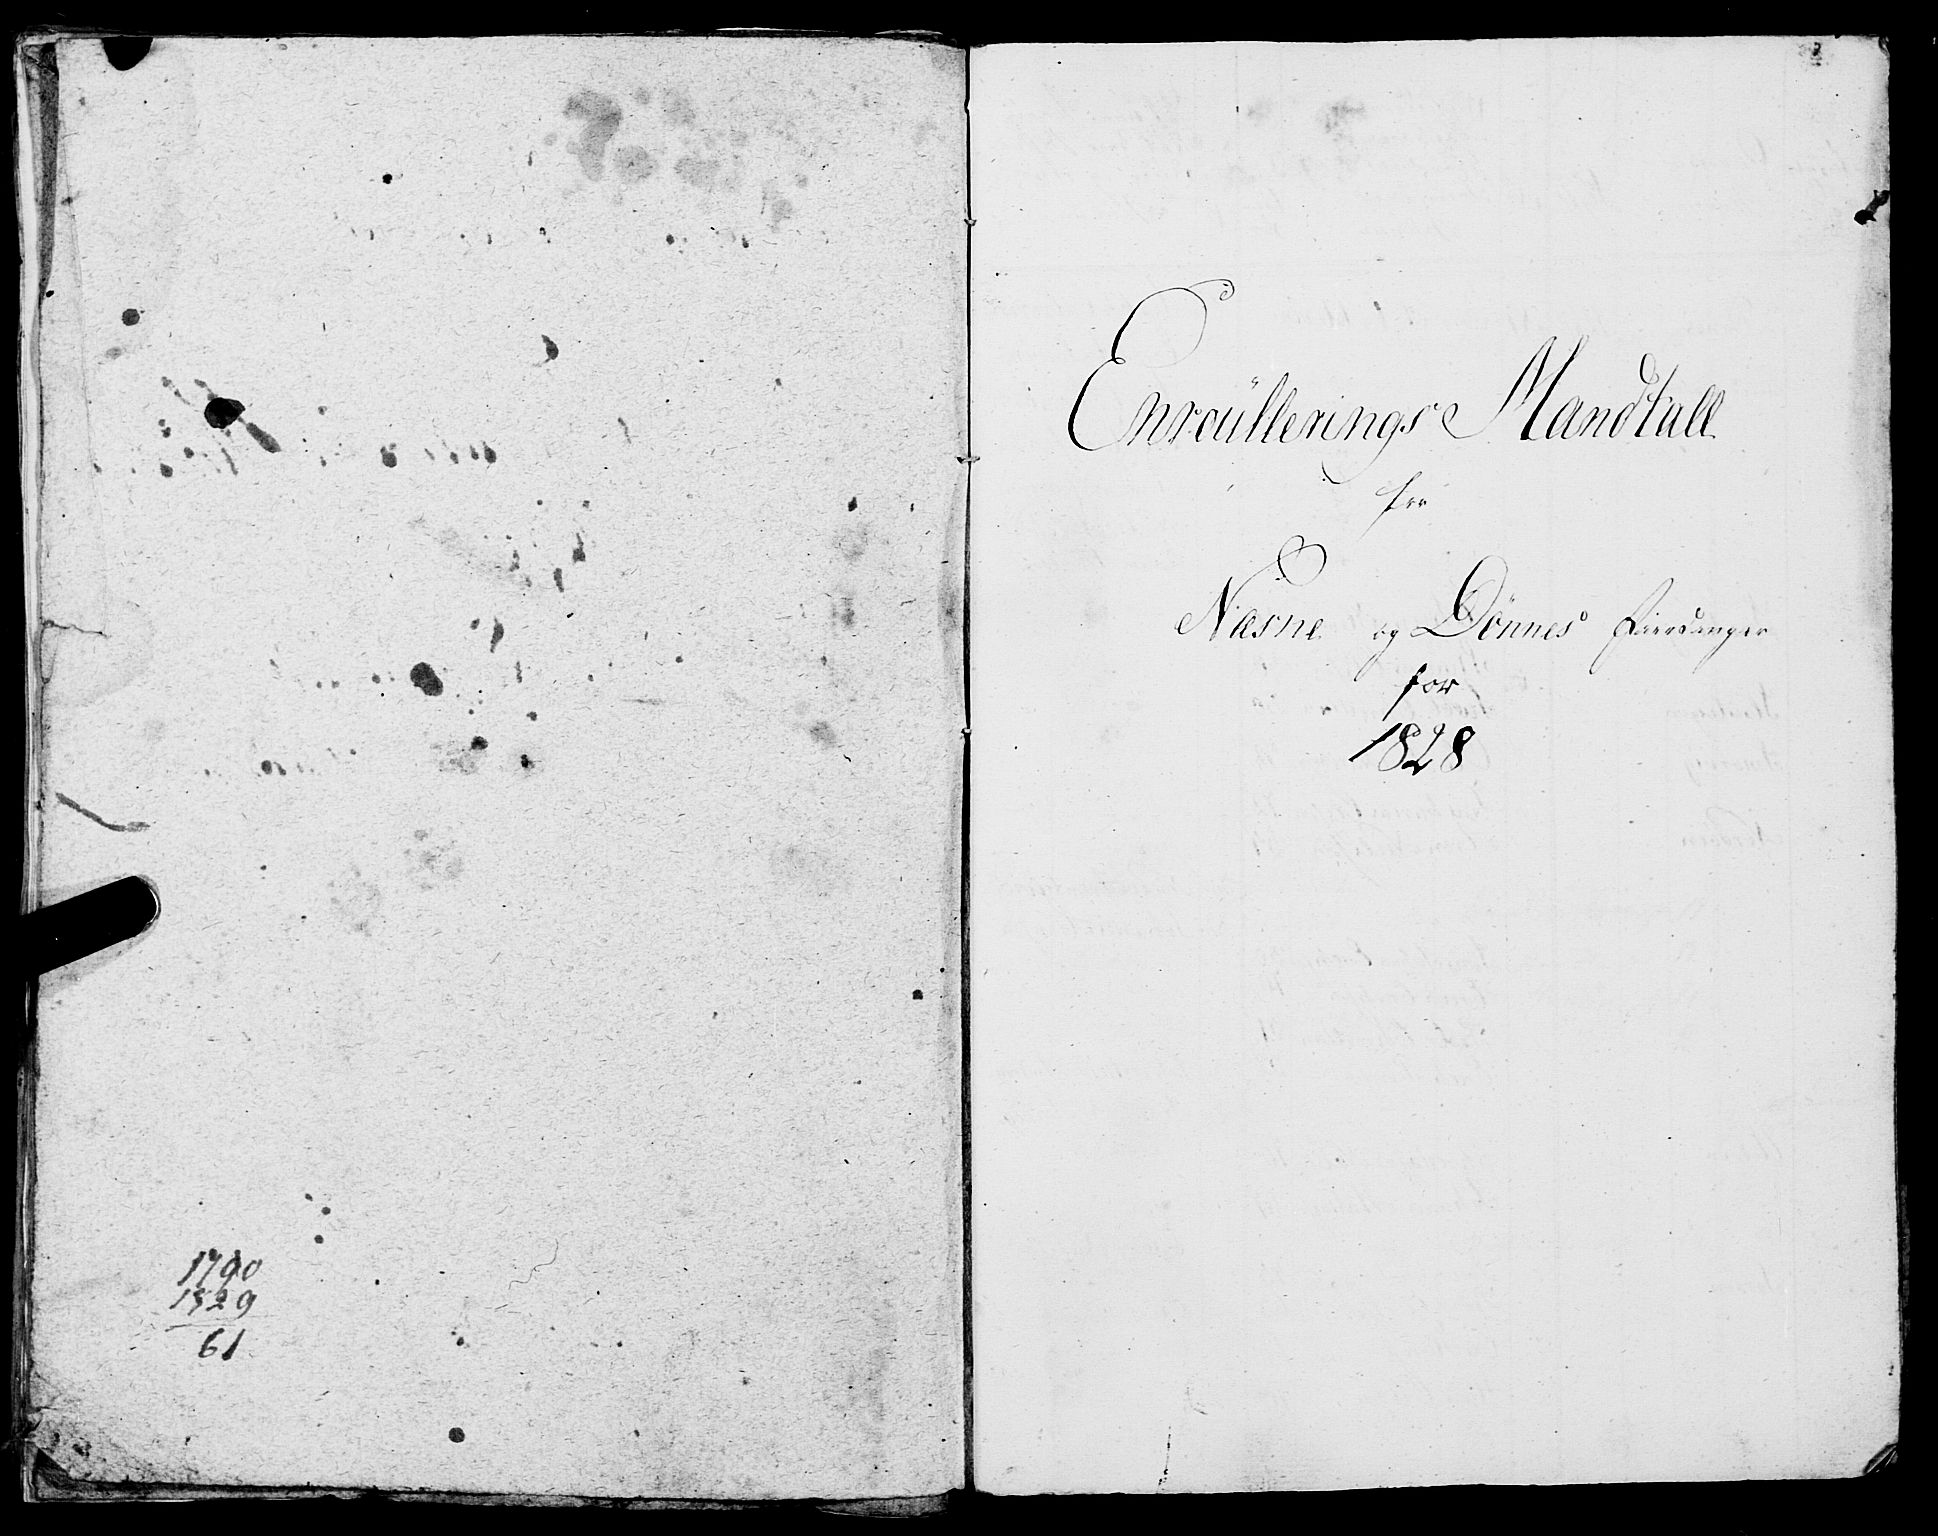 1790
1829
61
Enroullerings Mandtall
for
Næsne og Dönnes Fierdinger
for
1828